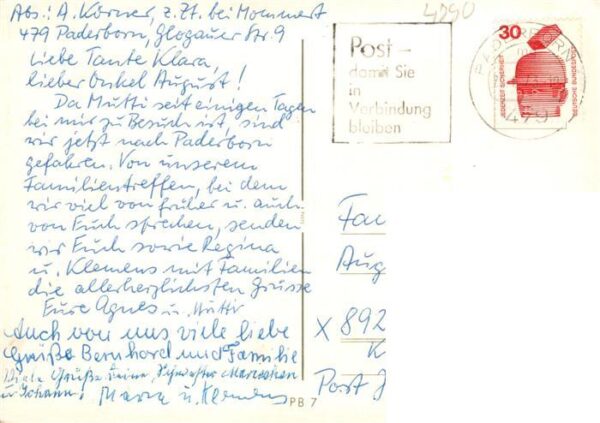 Abs.: A. Körner, z. Zt. bei Mommert
479 Paderborn, Glogauer Str. 9
Liebe Tante Klara,
lieber Onkel August!
Da Mutti seit einigen Tagen
bei mir zu Besuch ist, sind
wir jetzt nach Paderborn
gefahren. Von unserem
Familientreffen, bei dem
wir viel von früher u. auch
von Euch sprechen, senden
wir Euch sowie Regina
u. Klemens mit Familien
die allerherzlichsten Grüsse
Eure Agnes u. Mutti
Auch von uns viele liebe
Grüße Bernhard und Familie
Viele Grüße Deine Schwester
u. Johann! Maria u. Klemens
PB 7
4290
Post –
damit Sie
in
Verbindung
bleiben
PADERBORN
479
30
JEDERZEIT SICHERHEIT
DEUTSCHE BUNDESPOST
Fam
Aug
X 892
K
Post J